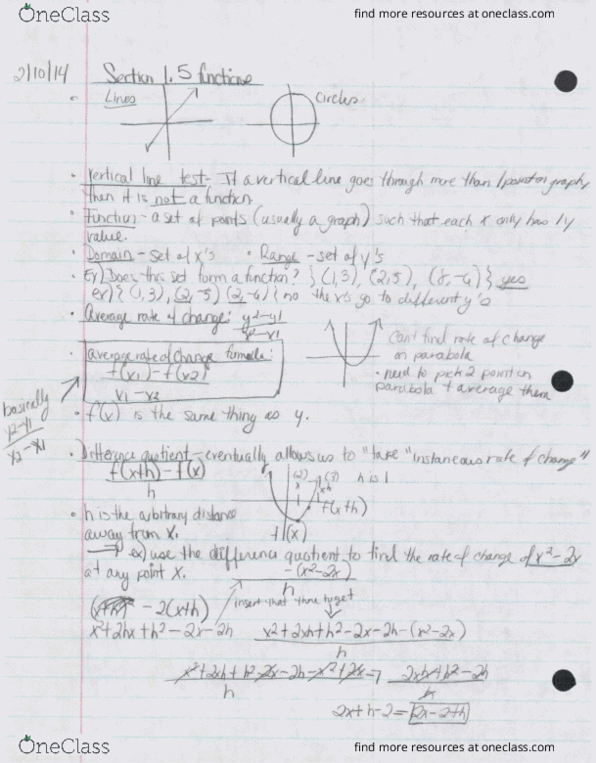 OneClass
find more resources at oneclass.com
2/10/14 Section 1.5 functions
Lines circles
Vertical line test- If a vertical line goes through more than 1 point on graph,
then it is not a function.
Function - a set of points (usually a graph) such that each x only has 1 y
value.
Domain - set of x's • Range - set of y's
Ex) Does this set form a function? {(1,3), (2,5), (8,-6)} yes
ex) {(1,3), (2,-5) (2,-6)} no the x's go to different y's
Average rate of change: y2-y1
x2-x1
Can't find rate of change
on parabola
• need to pick 2 point on
parabola + average them
average rate of change formula:
f(x1) - f(x2)
x1 - x2
basically
y2-y1
x2-x1
f(x) is the same thing as y.
Difference quotient - eventually allows us to "take "instaneous rate of change"
f(x+h) - f(x)
h
h is 1
f(x+h)
f(x)
h is the arbitrary distance
away from x.
ex) use the difference quotient to find the rate of change of x²-2x
at any point x.
-(x²-2x)
h
insert that
- 2(x+h)
x²+2hx+h²-2x-2h
x²+2xh+h²-2x-2h-(x²-2x)
h
x²+2xh+h²-2x-2h-x²+2x
h
2xh+h²-2h
h
2x+h-2 = 2x-2+h
OneClass
find more resources at oneclass.com